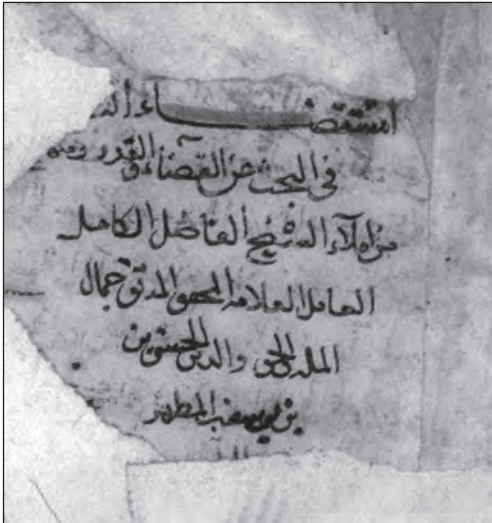 استقصاء
في البحث عن القضاء و القدر
من املاء الشيخ الفاضل الكامل
العامل العلامه المحقق المدقق جمال
المله و الحق والدين الحسن بن
بن يوسف المطهر